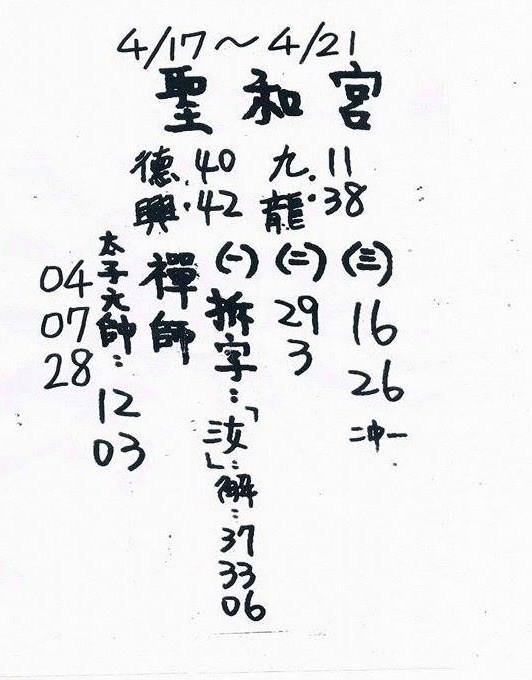 4/17～4/21
聖和宮
德興：40.42
九龍：11.38
禪師
(一)
拆字：「汝」：解：37 33 06
(二)
29
3
(三)
16
26
二沖一
太子元帥：
12
03
04
07
28